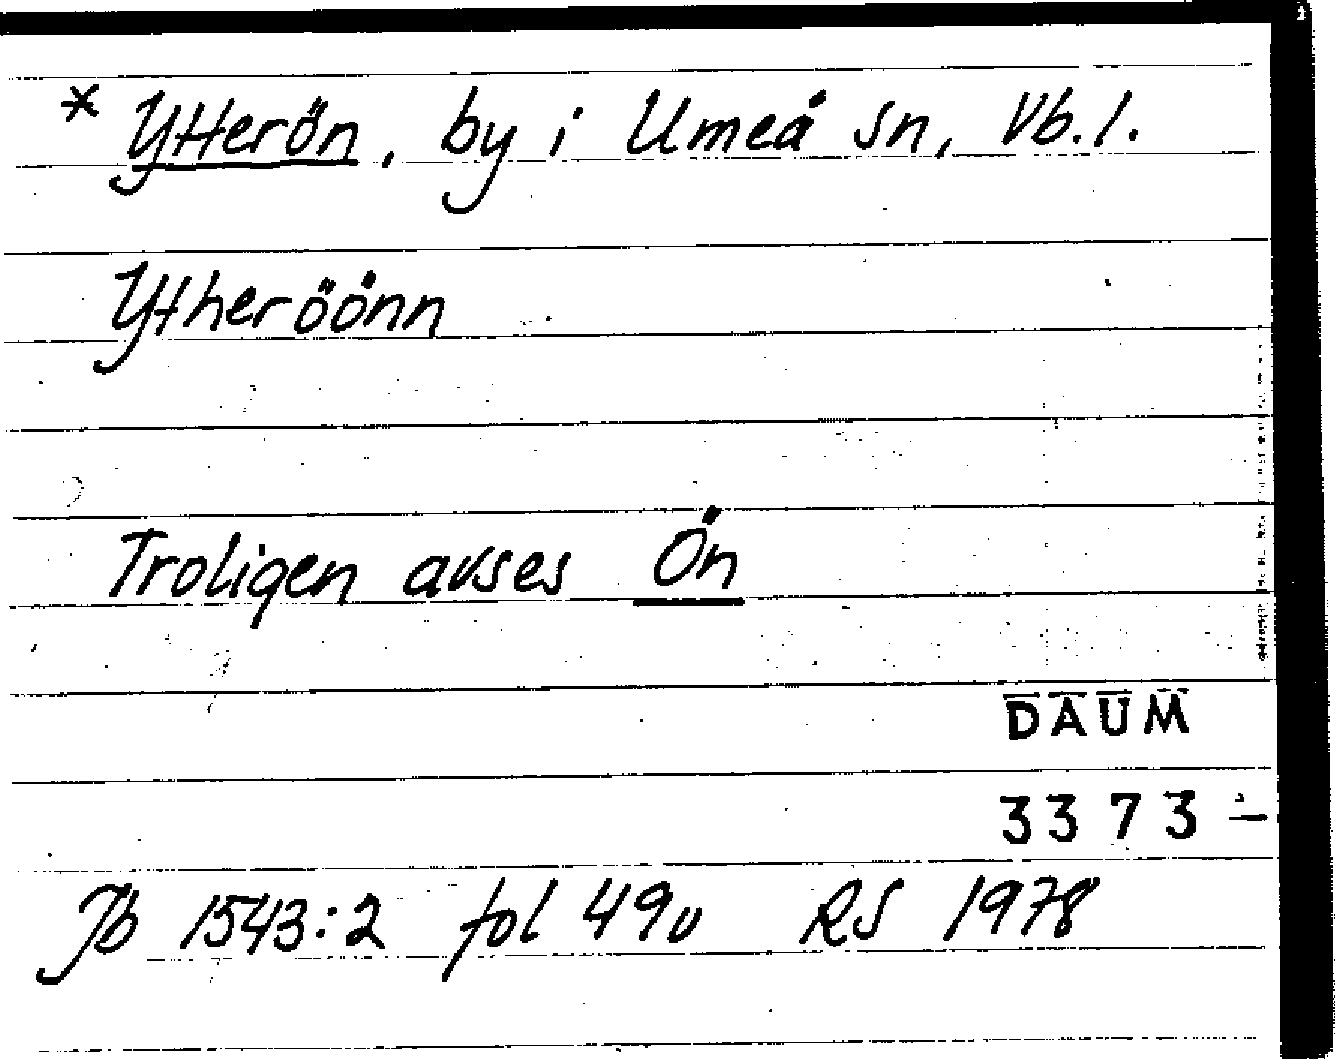 * Ytterön, by i Umeå sn, Vb. l.
Ytheröönn
Troligen avses Ön
DAUM
3373 -
Jb 1543:2 fol 49v RS 1978